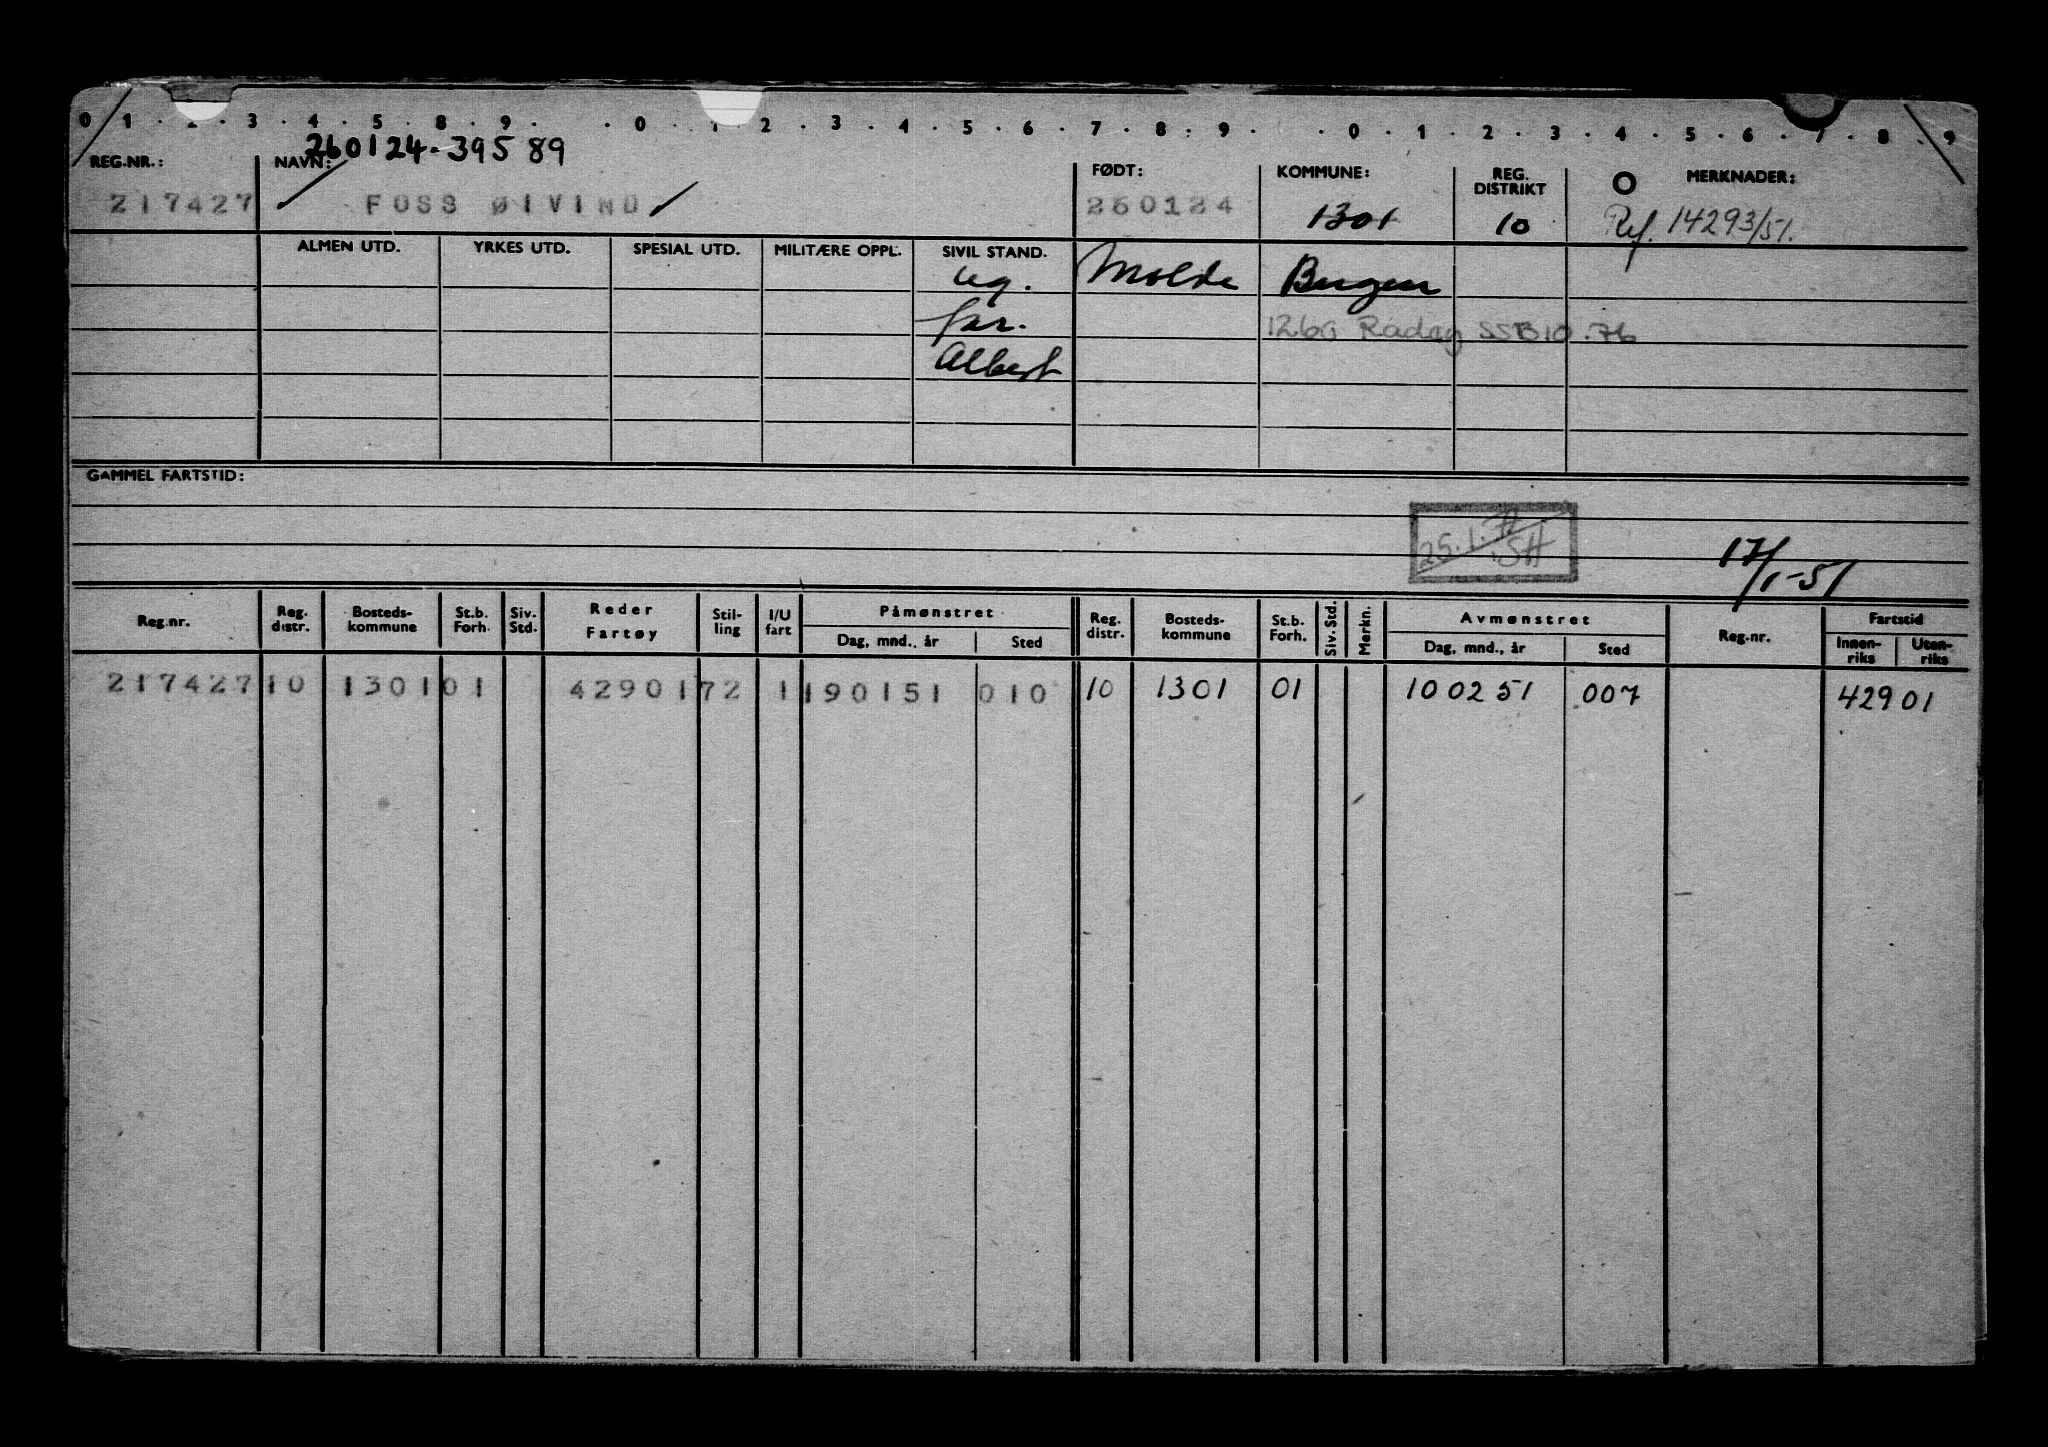 0 1 · 2 · 3 · 4 · 5 · 8 · 9 · · 0 · 1 · 2 · 3 · 4 · 5 · 6 · 7 · 8 · 9 · · 0 · 1 · 2 · 3 · 4 · 5 · 6 · 7 · 8 · 9
260124-39589
REG.NR.: NAVN: FØDT: KOMMUNE: REG. DISTRIKT MERKNADER:
217427 FOSS ØIVIND 260124 1301 10 Ref. 14293/51.
ALMEN UTD. YRKES UTD. SPESIAL UTD. MILITÆRE OPPL. SIVIL STAND.
ug. Molde Bergen
far. 1260 Radøy SSB 10.76
Albert
GAMMEL FARTSTID:
25.1.
17/1-51
Reg.nr. Reg. distr. Bosteds-kommune St.b. Forh. Siv. Std. Reder Fartøy Stil-ling I/U fart Påmønstret Dag, mnd., år Sted Reg. distr. Bosteds-kommune St.b. Forh. Siv. Std. Merkn. Avmønstret Dag, mnd., år Sted Reg.nr. Fartstid Innen-riks Uten-riks
217427 10 1301 01 42901 72 1 190151 010 10 1301 01 100251 007 42901